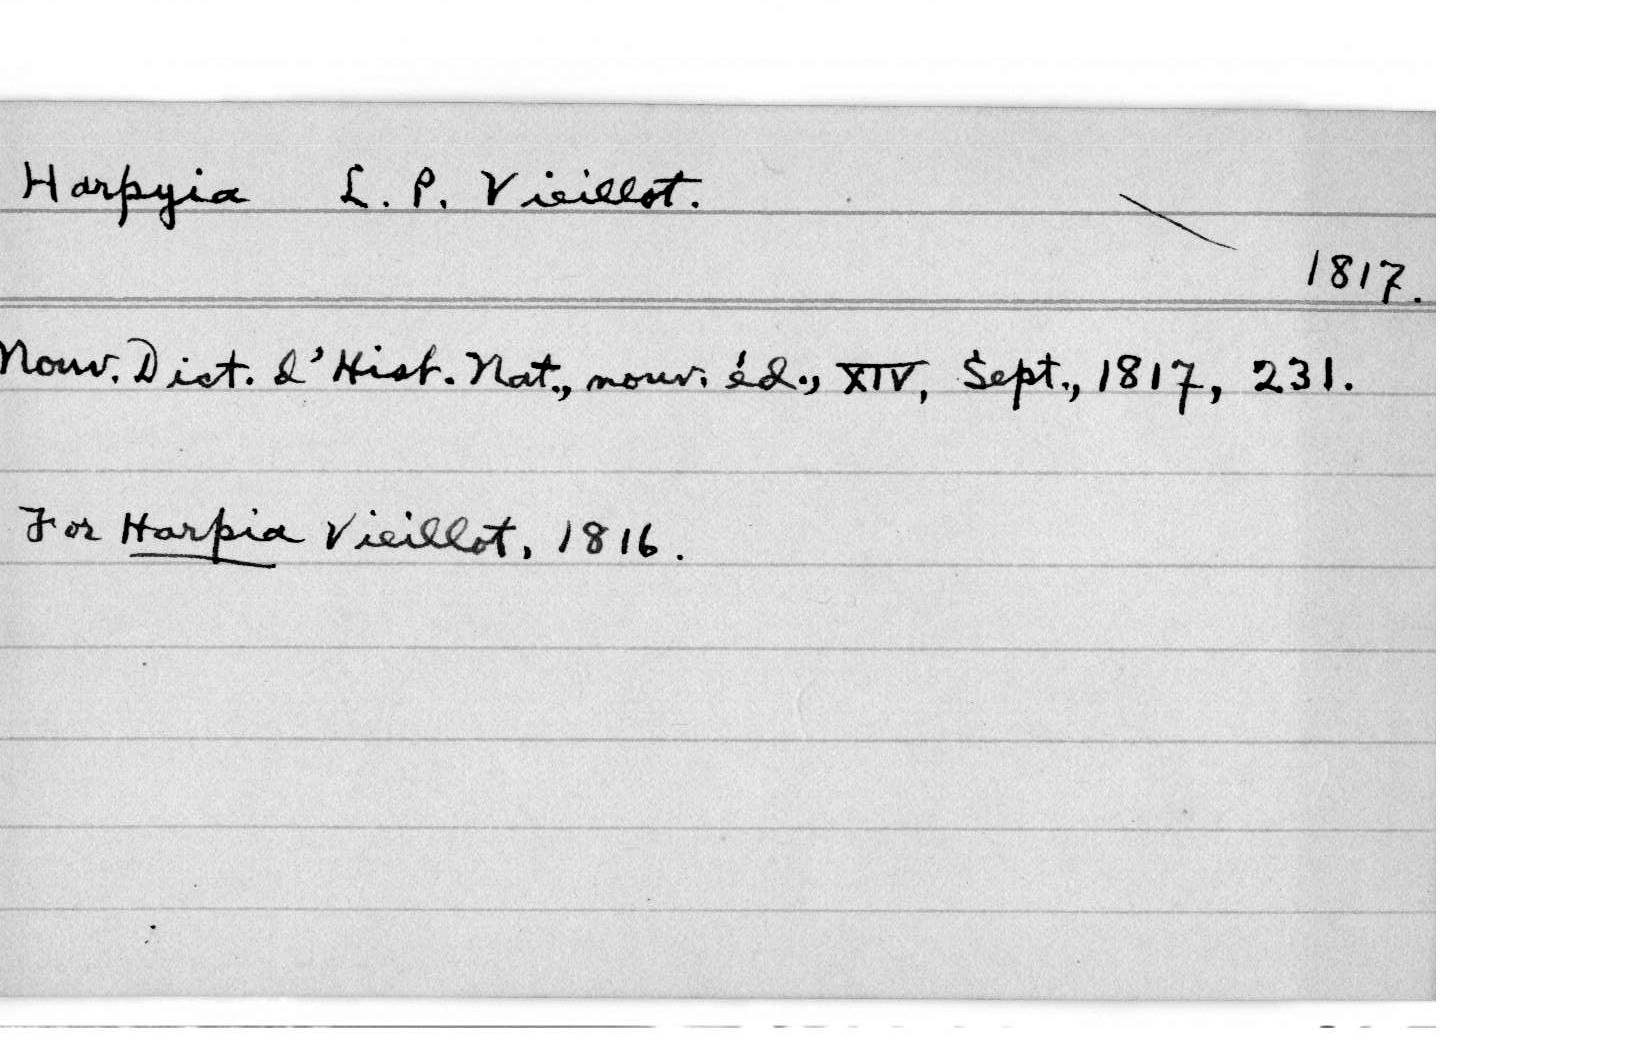 Harpyia L. P. Vieillot.
1817.
Nouv. Dict. d'Hist. Nat., nouv. éd., XIV, Sept., 1817, 231.
For Harpia Vieillot, 1816.